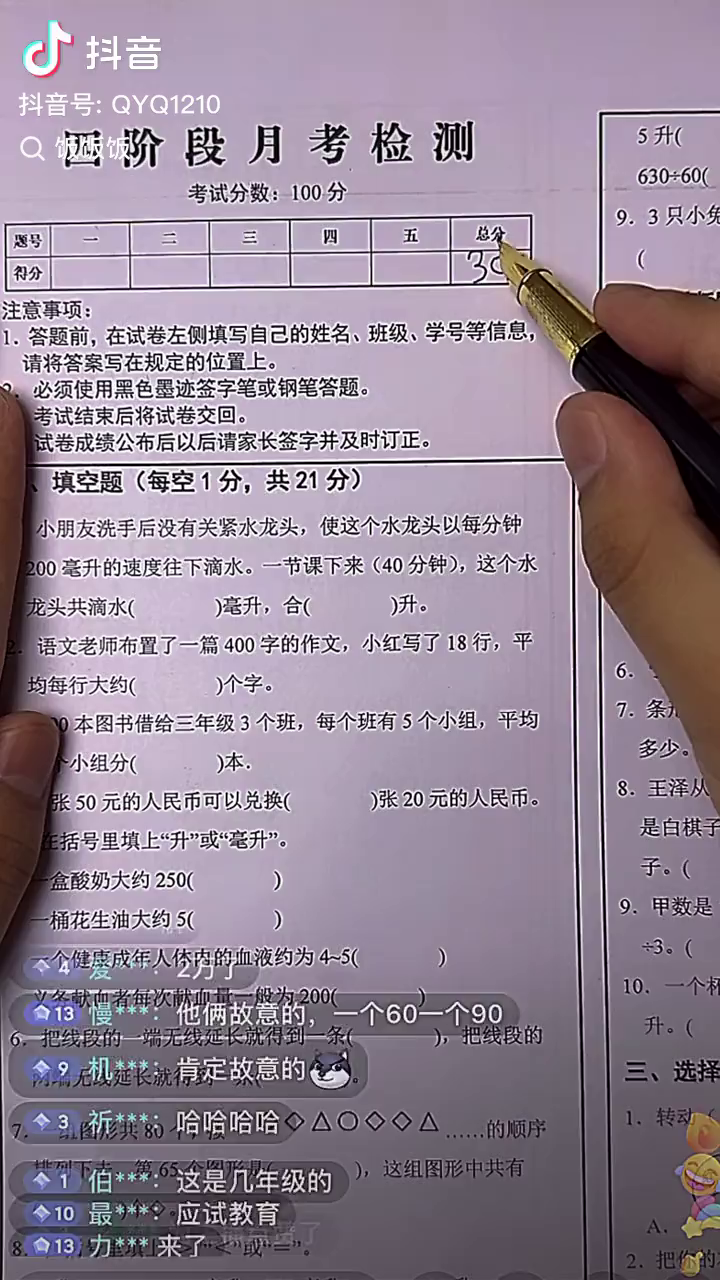 抖音
抖音号: QYQ1210
饭饭饭
四阶段月考检测
考试分数：100 分
题号 一 二 三 四 五 总分
得分 30
注意事项：
1. 答题前，在试卷左侧填写自己的姓名、班级、学号等信息，
请将答案写在规定的位置上。
2. 必须使用黑色墨迹签字笔或钢笔答题。
考试结束后将试卷交回。
试卷成绩公布后以后请家长签字并及时订正。
、填空题（每空 1 分，共 21 分）
小朋友洗手后没有关紧水龙头，使这个水龙头以每分钟
200 毫升的速度往下滴水。一节课下来（40 分钟），这个水
龙头共滴水( )毫升，合( )升。
2. 语文老师布置了一篇 400 字的作文，小红写了 18 行，平
均每行大约( )个字。
00 本图书借给三年级 3 个班，每个班有 5 个小组，平均
个小组分( )本.
张 50 元的人民币可以兑换( )张 20 元的人民币。
在括号里填上“升”或“毫升”。
一盒酸奶大约 250( )
一桶花生油大约 5( )
一个健康成年人体内的血液约为 4~5( )
义务献血者每次献血量一般为 200( )
6. 把线段的一端无线延长就得到一条( )，把线段的
两端无线延长就得到一条( )。
7. 一组图形共 80 个，按◇△○◇◇△……的顺序
排列下去，第 65 个图形是( )，这组图形中共有
8.
5 升(
630÷60(
9. 3 只小兔
(
6.
7. 条形
多少。
8. 王泽从
是白棋子
子。(
9. 甲数是
÷3。(
10. 一个杯
升。(
三、选择
1. 转动（
A.
2. 把你的
4 爱***：2万了
13 慢***：他俩故意的，一个60一个90
9 机***：肯定故意的
3 祈***：哈哈哈哈
1 伯***：这是几年级的
10 最***：应试教育
13 力***来了